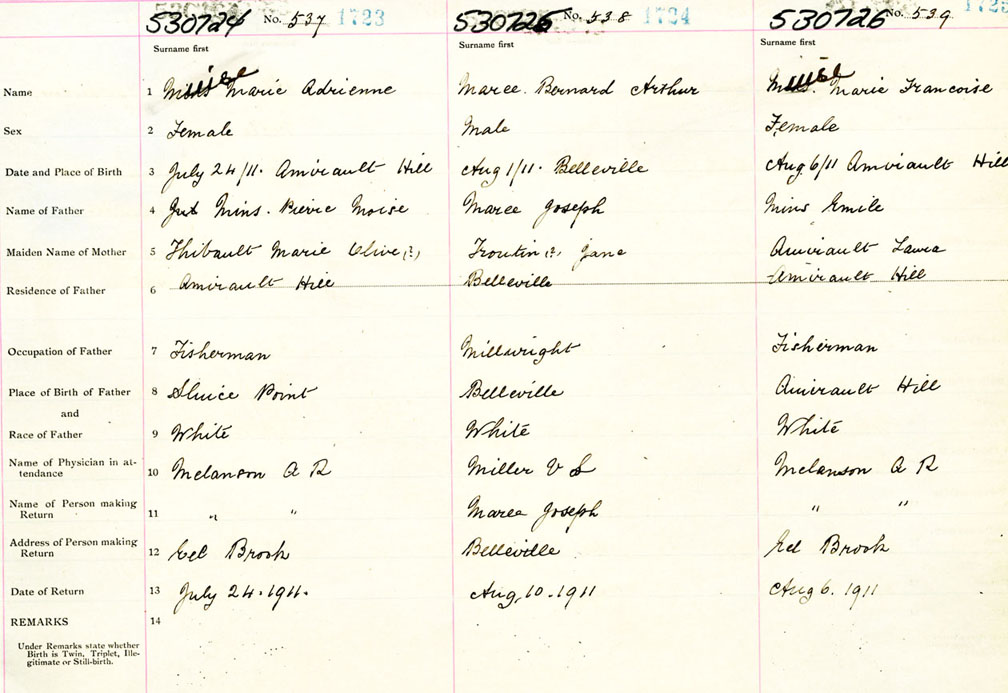 530724 No. 537 1723 530725 No. 538 1724 530726 No. 539 1725
Surname first Surname first Surname first
Name 1 Muise Marie Adrienne Maree. Bernard Arthur Muise Marie Francoise
Sex 2 Female Male Female
Date and Place of Birth 3 July 24/11. Amirault Hill Aug 1/11. Belleville Aug 6/11 Amirault Hill
Name of Father 4 Mius. Pierre Moise Maree Joseph Mius Emile
Maiden Name of Mother 5 Thibault Marie Olive(?) Froutin(?) Jane Amirault Laura
Residence of Father 6 Amirault Hill Belleville Amirault Hill
Occupation of Father 7 Fisherman Millwright Fisherman
Place of Birth of Father 8 Sluice Point Belleville Amirault Hill
and
Race of Father 9 White White White
Name of Physician in at-
tendance 10 Melanson A R Miller V L Melanson A R
Name of Person making
Return 11 " " Maree Joseph " "
Address of Person making
Return 12 Eel Brook Belleville Eel Brook
Date of Return 13 July 24. 1911. Aug, 10. 1911 Aug 6. 1911
REMARKS 14
Under Remarks state whether
Birth is Twin, Triplet, Ille-
gitimate or Still-birth.